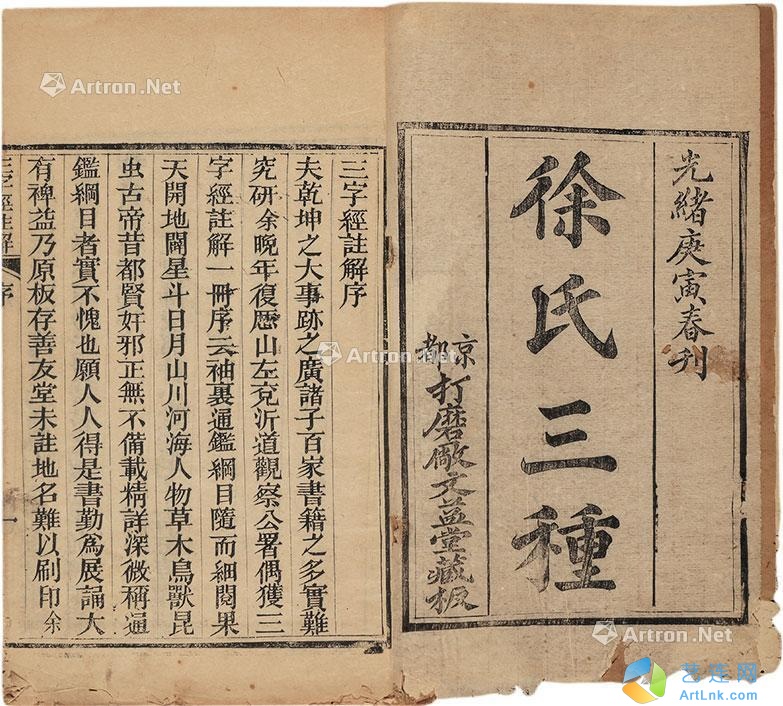 光緒庚寅春刊
徐氏三種
京都打磨廠文益堂藏板
三字經註解序
夫乾坤之大事跡之廣諸子百家書籍之多實難
究研余晚年復歷山左兗沂道觀察公署偶獲三
字經註解一冊序云袖裏通鑑綱目隨而細閱果
天開地闢星斗日月山川河海人物草木鳥獸昆
虫古帝昔都賢奸邪正無不備載精詳深微稱通
鑑綱目者實不愧也願人人得是書勤為展誦大
有裨益乃原板存善友堂未註地名難以刷印余
三字經註解 序 一
Artron.Net
Artron.Net
Artron.Net
艺连网
ArtLnk.com